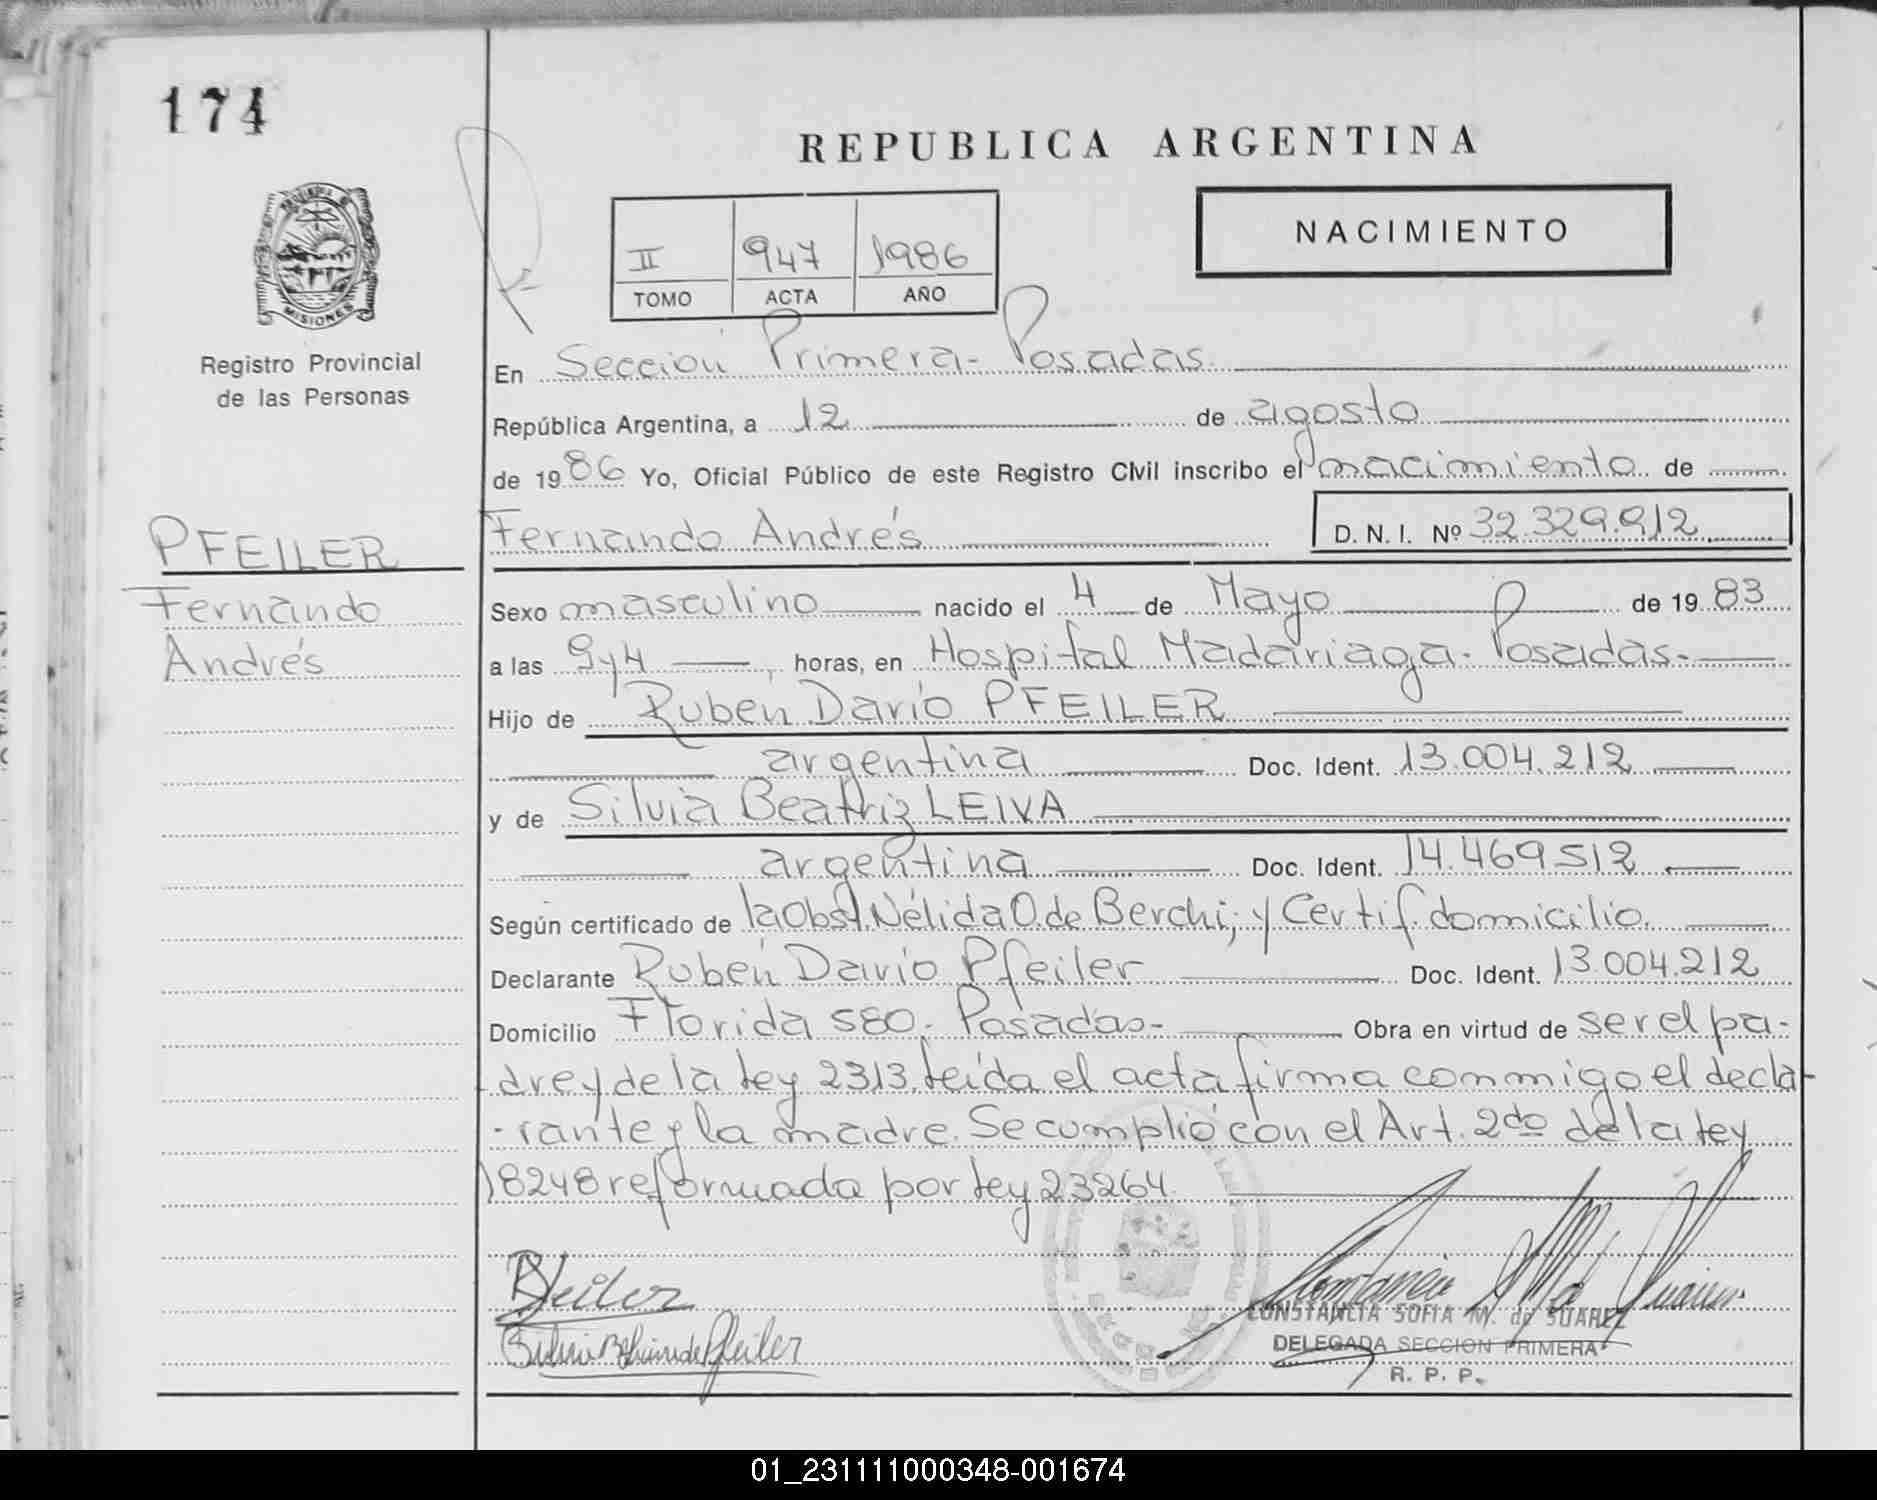 174
REPUBLICA ARGENTINA
II 947 1986
TOMO ACTA AÑO
NACIMIENTO
MISIONES
Registro Provincial
de las Personas
En Sección Primera - Posadas.
República Argentina, a 12 de agosto
de 1986 Yo, Oficial Público de este Registro Civil inscribo el nacimiento de
PFEILER
Fernando
Andrés
Fernando Andrés D. N. I. Nº 32.329.912
Sexo masculino nacido el 4 de Mayo de 1983
a las 9y4 horas, en Hospital Madariaga - Posadas.-
Hijo de Rubén Darío PFEILER
argentina Doc. Ident. 13.004.212
y de Silvia Beatriz LEIVA
argentina Doc. Ident. 14.469512
Según certificado de la Obst. Nélida O. de Berchi; y Certif. domicilio.
Declarante Rubén Darío Pfeiler Doc. Ident. 13.004.212
Domicilio Florida 580.- Posadas.- Obra en virtud de ser el pa-
dre y de la ley 2313. Leída el acta firma conmigo el decla-
-rante y la madre. Se cumplió con el Art. 2do de la ley
18248 reformada por ley 23264.
CONSTANCIA SOFIA M. de SUAREZ
DELEGADA SECCION PRIMERA
R. P. P.
01_231111000348-001674